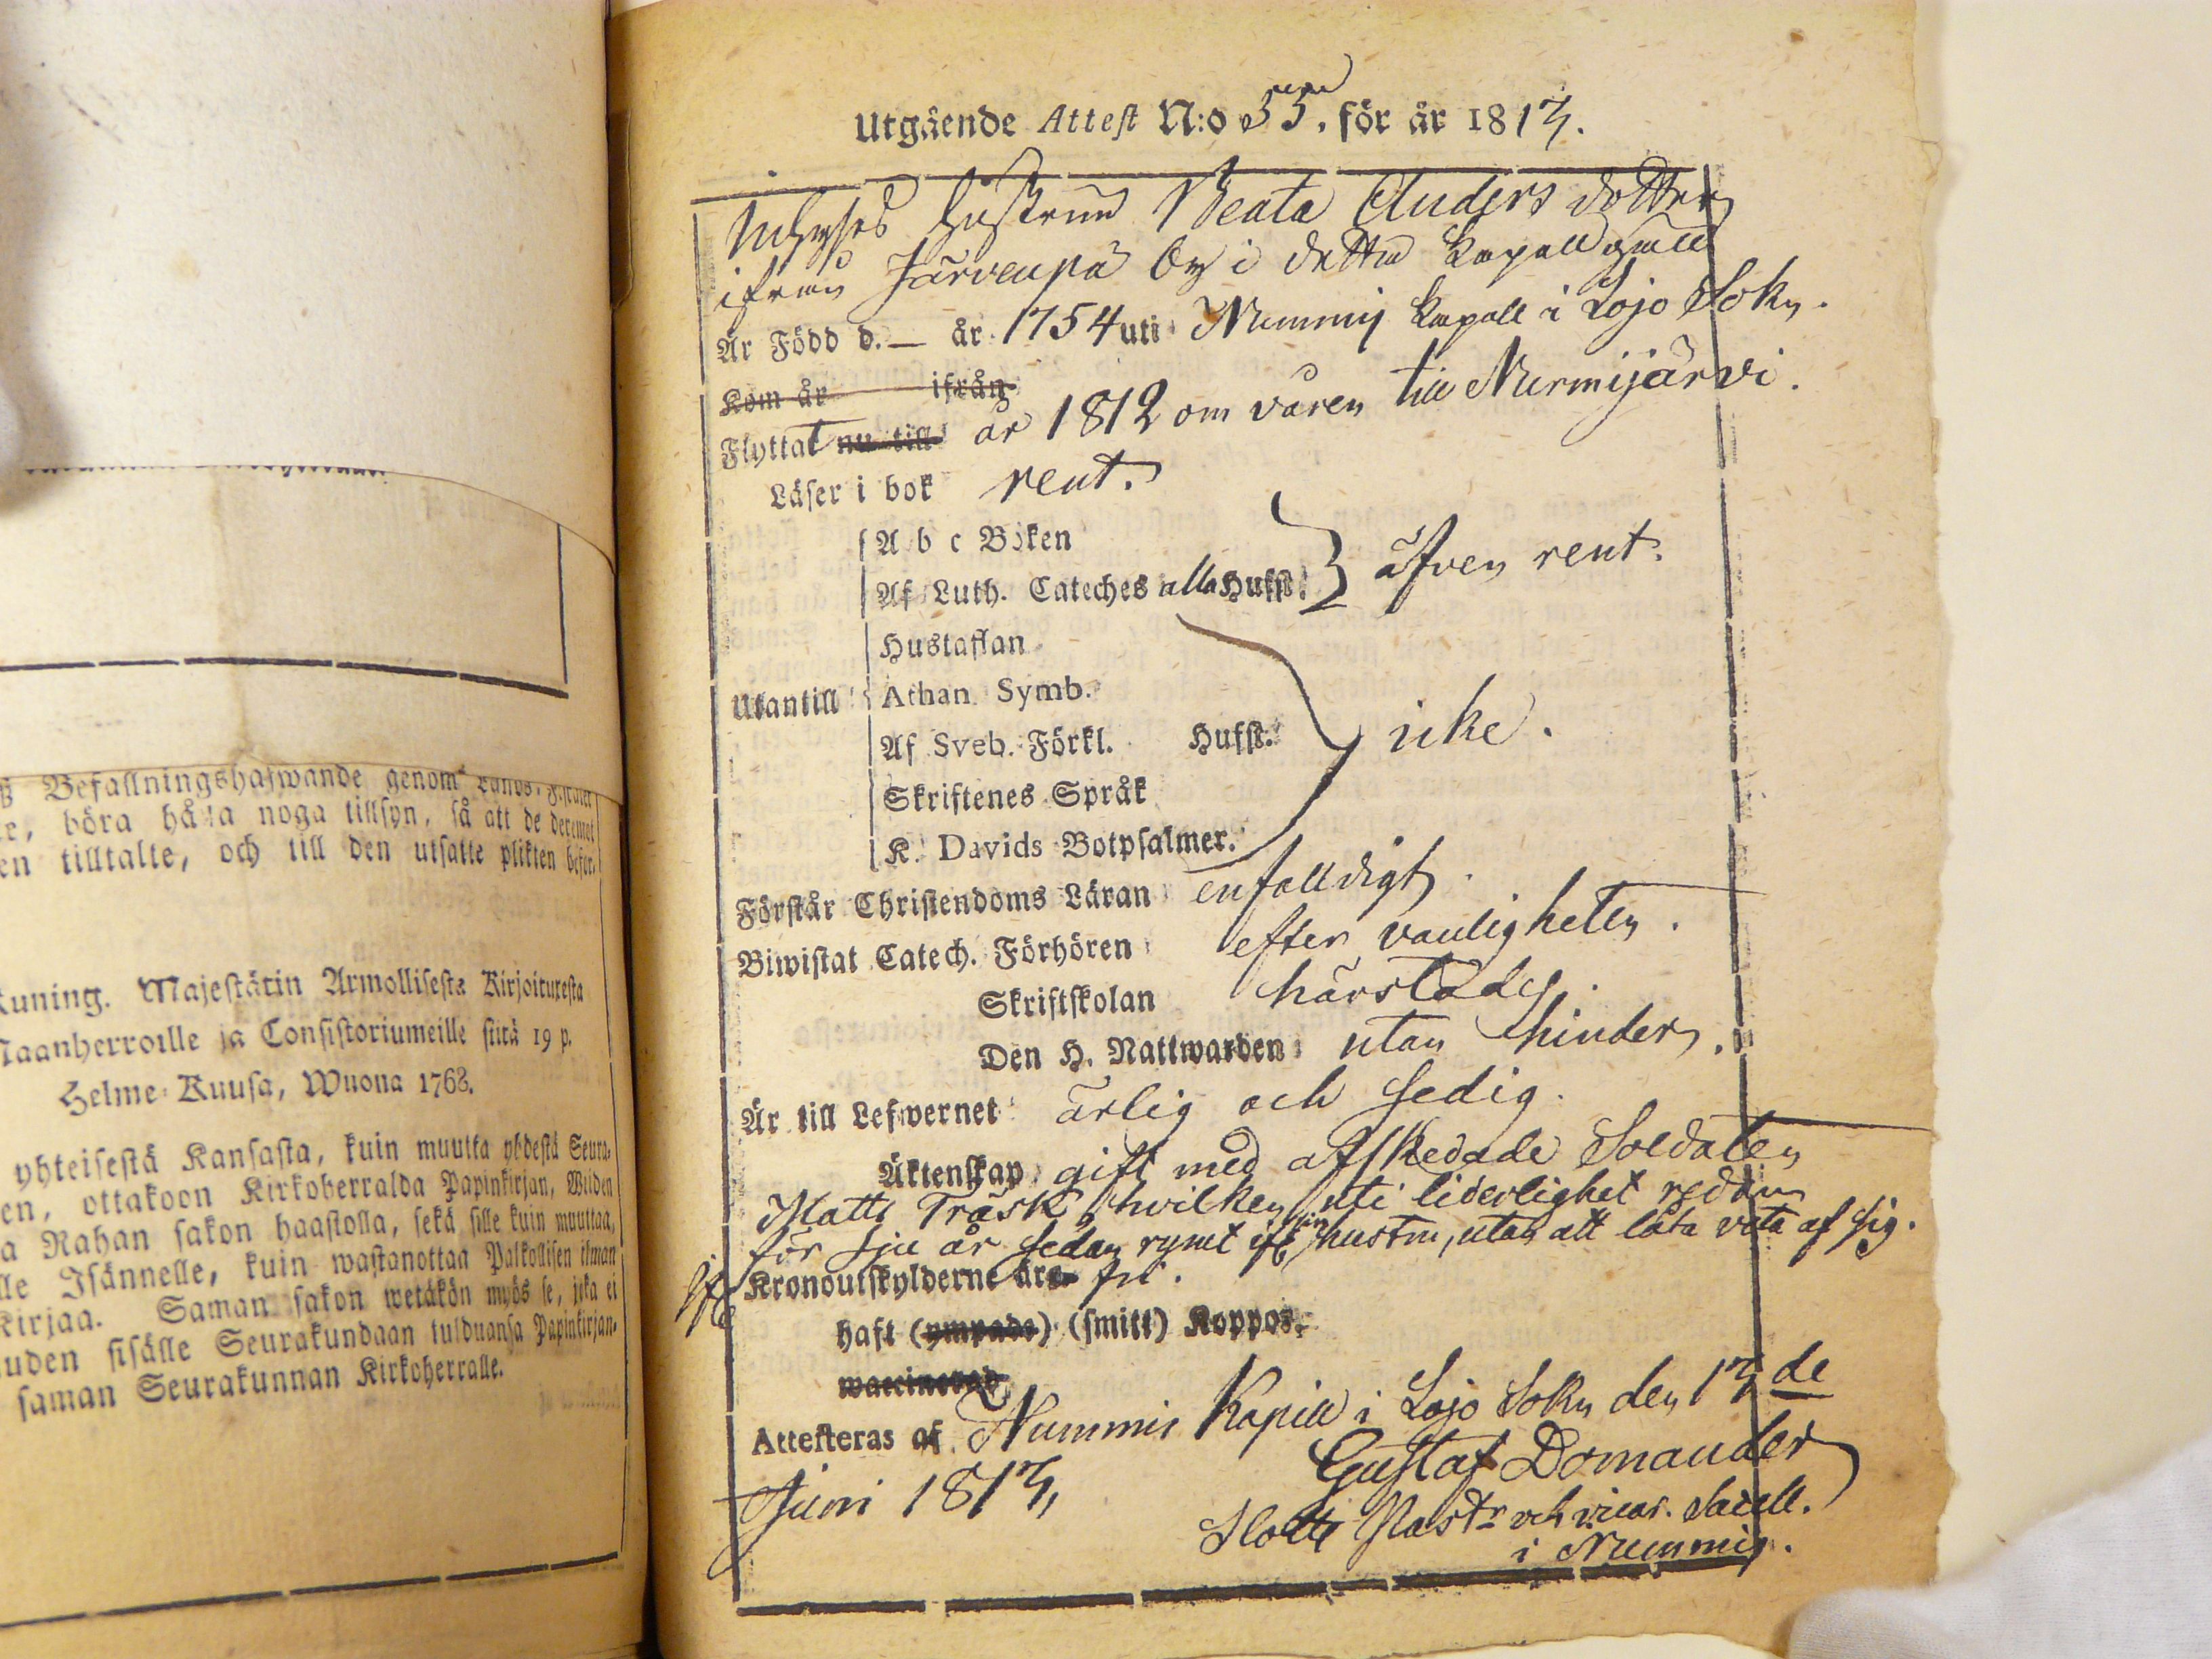 ß Befallningshafwande genom Lands-Fiscaler
re, böra hålla noga tillsyn, så att de deremot
en tilltalte, och till den utsatte plikten befor-
Kuning. Majestätin Armollisesta Kirjoituresta
Maanherroille ja Consistoriumeille siitä 19 p.
Helme-Kuusa, Wuona 1768.
yhteisestä Kansasta, kuin muutta yhdestä Seura-
en, ottakoon Kirkoherralda Papinkirjan, Wilden
a Rahan sakon haastolla, sekä sille kuin muuttaa,
lle Isännelle, kuin wastanottaa Palkollisen ilman
Kirjaa. Saman sakon wetäkön myös se, joka ei
uden sisälle Seurakundaan tulduansa Papinkirjan-
saman Seurakunnan Kirkoherralle.
Utgående Attest N:o 55. för år 1813.
Hustrun Beata Anders dotter
ifrån Järvenpä by i detta Capell gäll
Är Född d. — år 1754 uti Nummis Capell i Lojo Sokn.
Kom år ifrån
Flyttat nu till år 1812 om våren till Nurmijärvi.
Läser i bok rent.
A b c Boken
Af Luth. Cateches alla Hufst. } äfven rent.
Hustaflan
Utantill Athan. Symb.
Af Sveb. Förkl. Hufst. } icke.
Skriftenes Språk
K. Davids Botpsalmer.
Förstår Christendoms Läran enfalldigt.
Biwistat Catech. Förhören efter vanligheten.
Skriftskolan härstädes.
Den H. Nattwarden utan hinder.
Är till Lefwernet ärlig och sedig.
Äktenskap gift med afskedade Soldaten
Matts Träsk, hvilken uti liderlighet redan
för sju år sedan rymt ifr. sin hustru, utan att låta veta af sig.
Kronoutskylderne äre fri.
haft (ympade) (smitt) Koppor.
waccinerad
Attesteras af Nummis Kapell i Lojo Sokn den 13de
Juni 1813,
Gustaf Domander
Slotts Past:r och vicar. Sacell.
i Nummis.